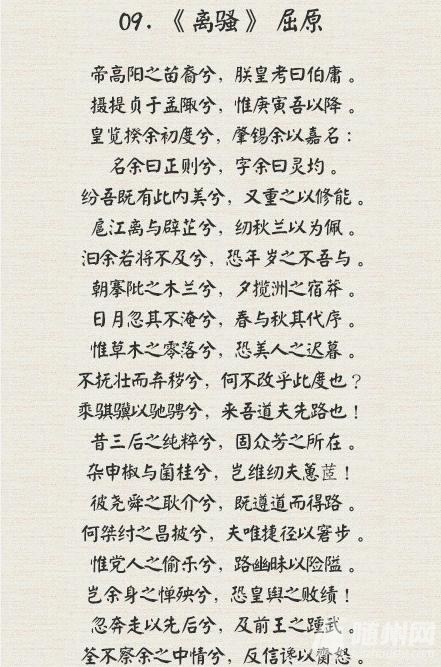 09.《离骚》 屈原
帝高阳之苗裔兮，朕皇考曰伯庸。
摄提贞于孟陬兮，惟庚寅吾以降。
皇览揆余初度兮，肇锡余以嘉名：
名余曰正则兮，字余曰灵均。
纷吾既有此内美兮，又重之以修能。
扈江离与辟芷兮，纫秋兰以为佩。
汩余若将不及兮，恐年岁之不吾与。
朝搴阰之木兰兮，夕揽洲之宿莽。
日月忽其不淹兮，春与秋其代序。
惟草木之零落兮，恐美人之迟暮。
不抚壮而弃秽兮，何不改乎此度也？
乘骐骥以驰骋兮，来吾道夫先路也！
昔三后之纯粹兮，固众芳之所在。
杂申椒与菌桂兮，岂维纫夫蕙茝！
彼尧舜之耿介兮，既遵道而得路。
何桀纣之昌披兮，夫唯捷径以窘步。
惟党人之偷乐兮，路幽昧以险隘。
岂余身之惮殃兮，恐皇舆之败绩！
忽奔走以先后兮，及前王之踵武。
荃不察余之中情兮，反信谗以齌怒。
随州网